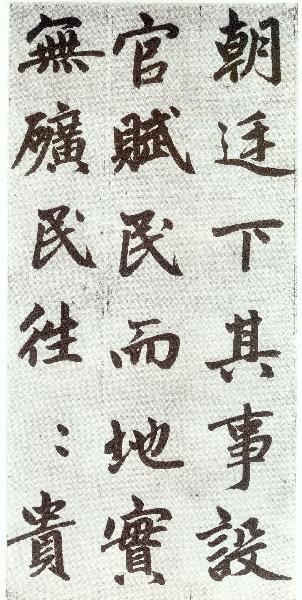 朝廷下其事設
官賦民而地實
無礦民徃〻貴